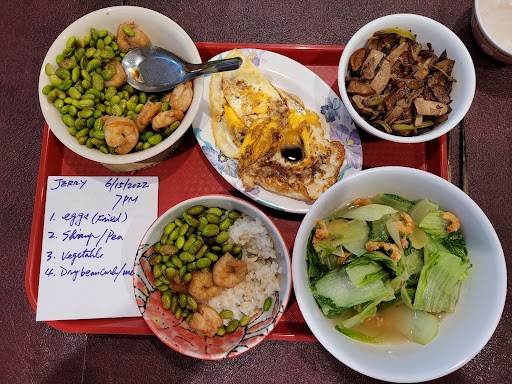 JERRY 6/15/2022
7PM
1. eggs (fried)
2. Shrimp/Pea
3. Vegetable
4. Dry beancurd/